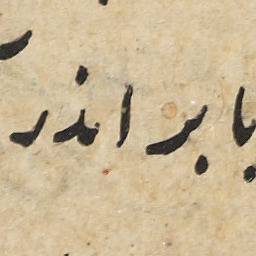 یا بر اندر